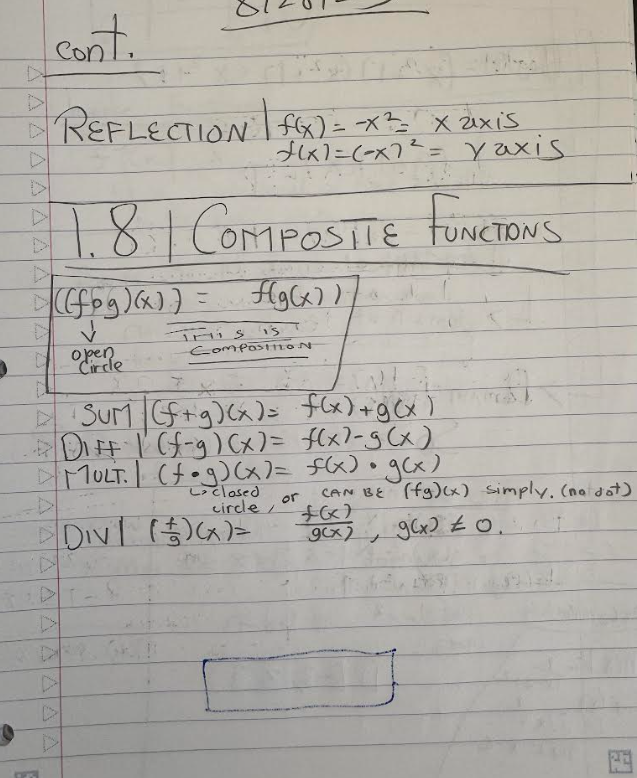 cont.
REFLECTION | f(x) = -x² = x axis
f(x) = (-x)² = y axis
1.8 | COMPOSITE FUNCTIONS
((f∘g)(x)) = f(g(x))
↓ THIS IS
open COMPOSITION
circle
SUM | (f+g)(x) = f(x)+g(x)
DIFF | (f-g)(x) = f(x)-g(x)
MULT. | (f•g)(x) = f(x) • g(x)
↳ closed circle, or CAN BE (fg)(x) simply. (no dot)
DIV | (f/g)(x) = f(x)/g(x), g(x) ≠ 0.